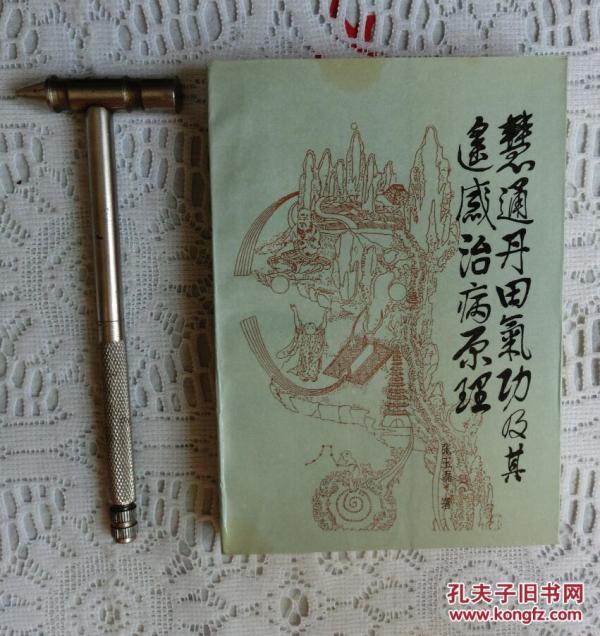 慧通丹田氣功及其
遙感治病原理
张玉磊 著
孔夫子旧书网
www.kongfz.com